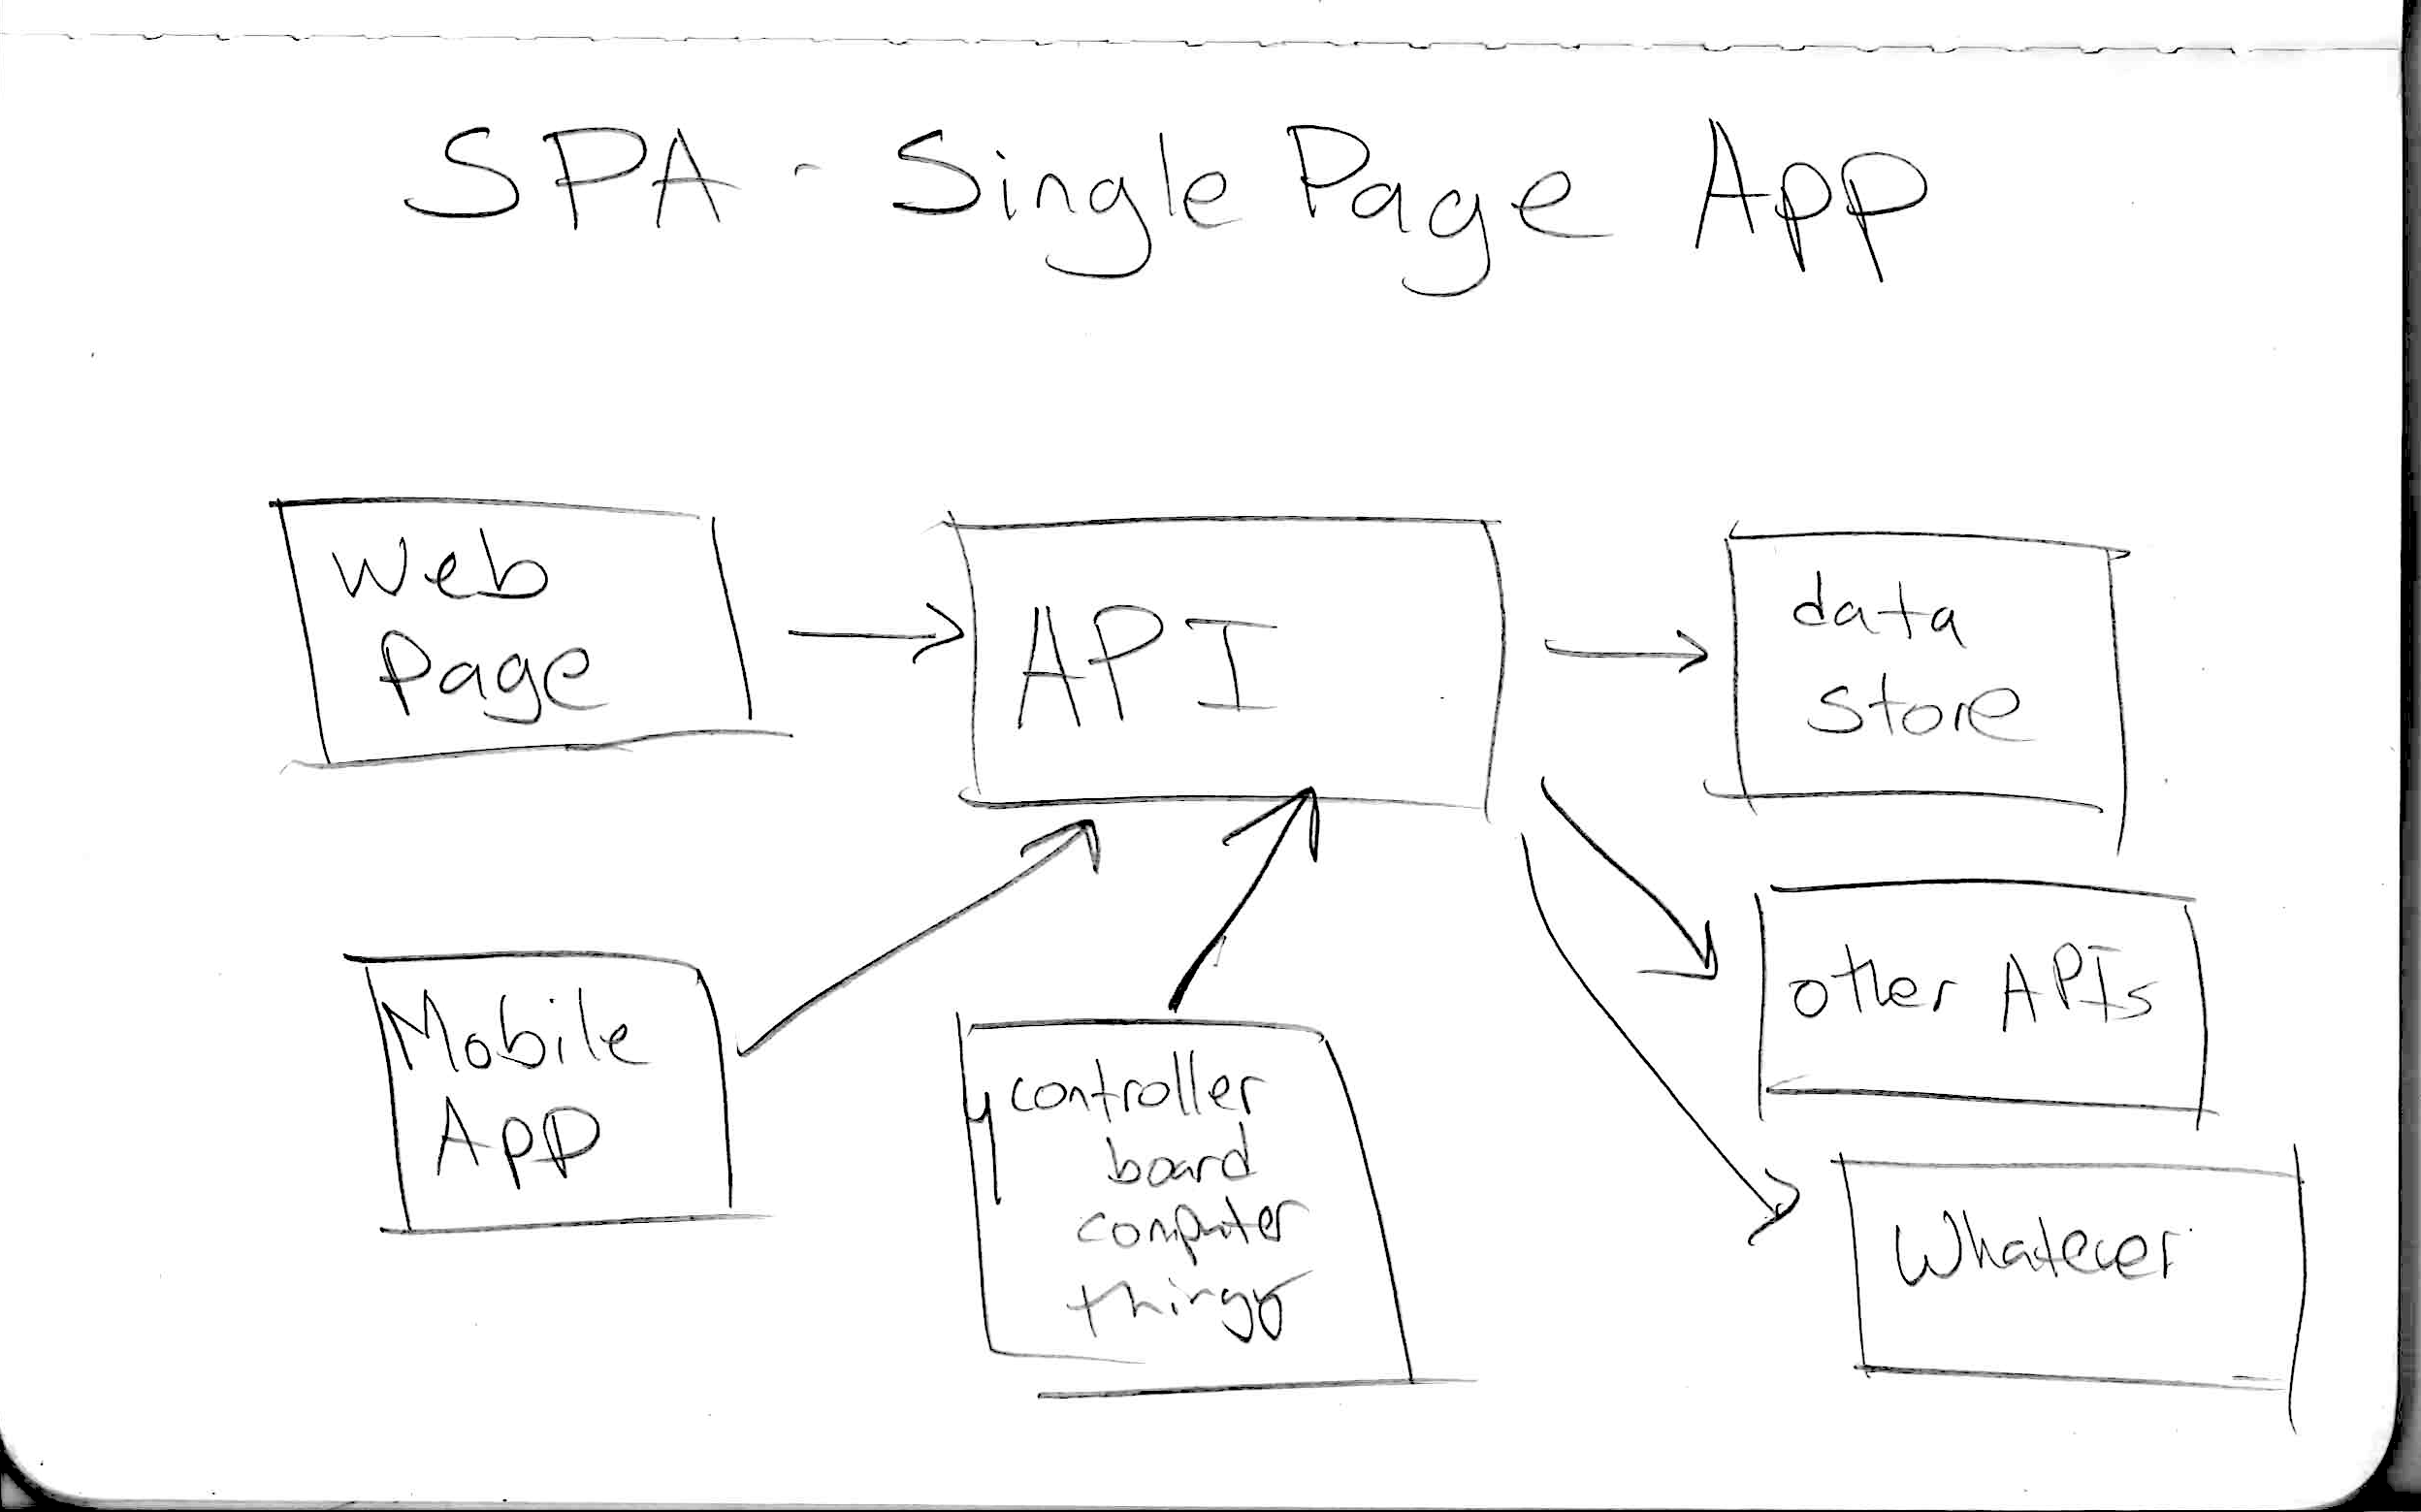 SPA - Single Page App
Web
Page
API
data
store
Mobile
App
μcontroller
board
computer
thingy
other APIs
Whatever